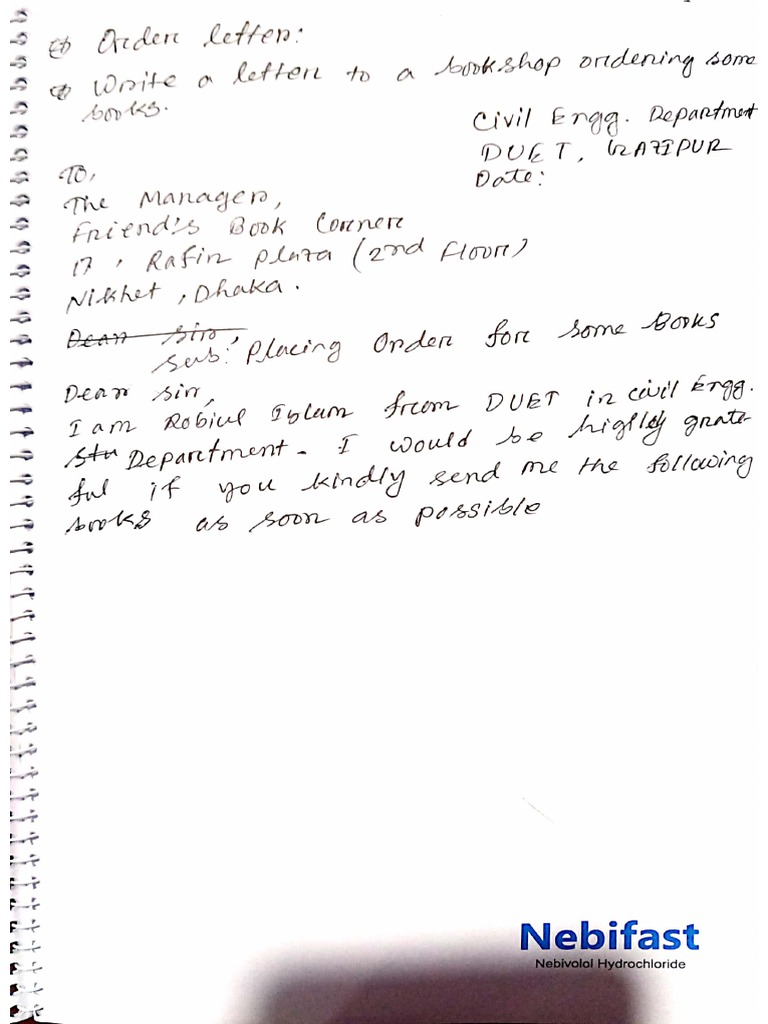 Order letter:
Write a letter to a bookshop ordering some
books.
Civil Engg. Department
DUET, GAZIPUR
Date:
To,
The Manager,
Friend's Book Corner
17, Rafin Plaza (2nd Floor)
Nikhet, Dhaka.
Dear Sir,
Sub: Placing Order for some Books
Dear Sir,
I am Robiul Islam from DUET in civil Engg.
Stu Department. I would be highly grate-
ful if you kindly send me the following
books as soon as possible
Nebifast
Nebivolol Hydrochloride